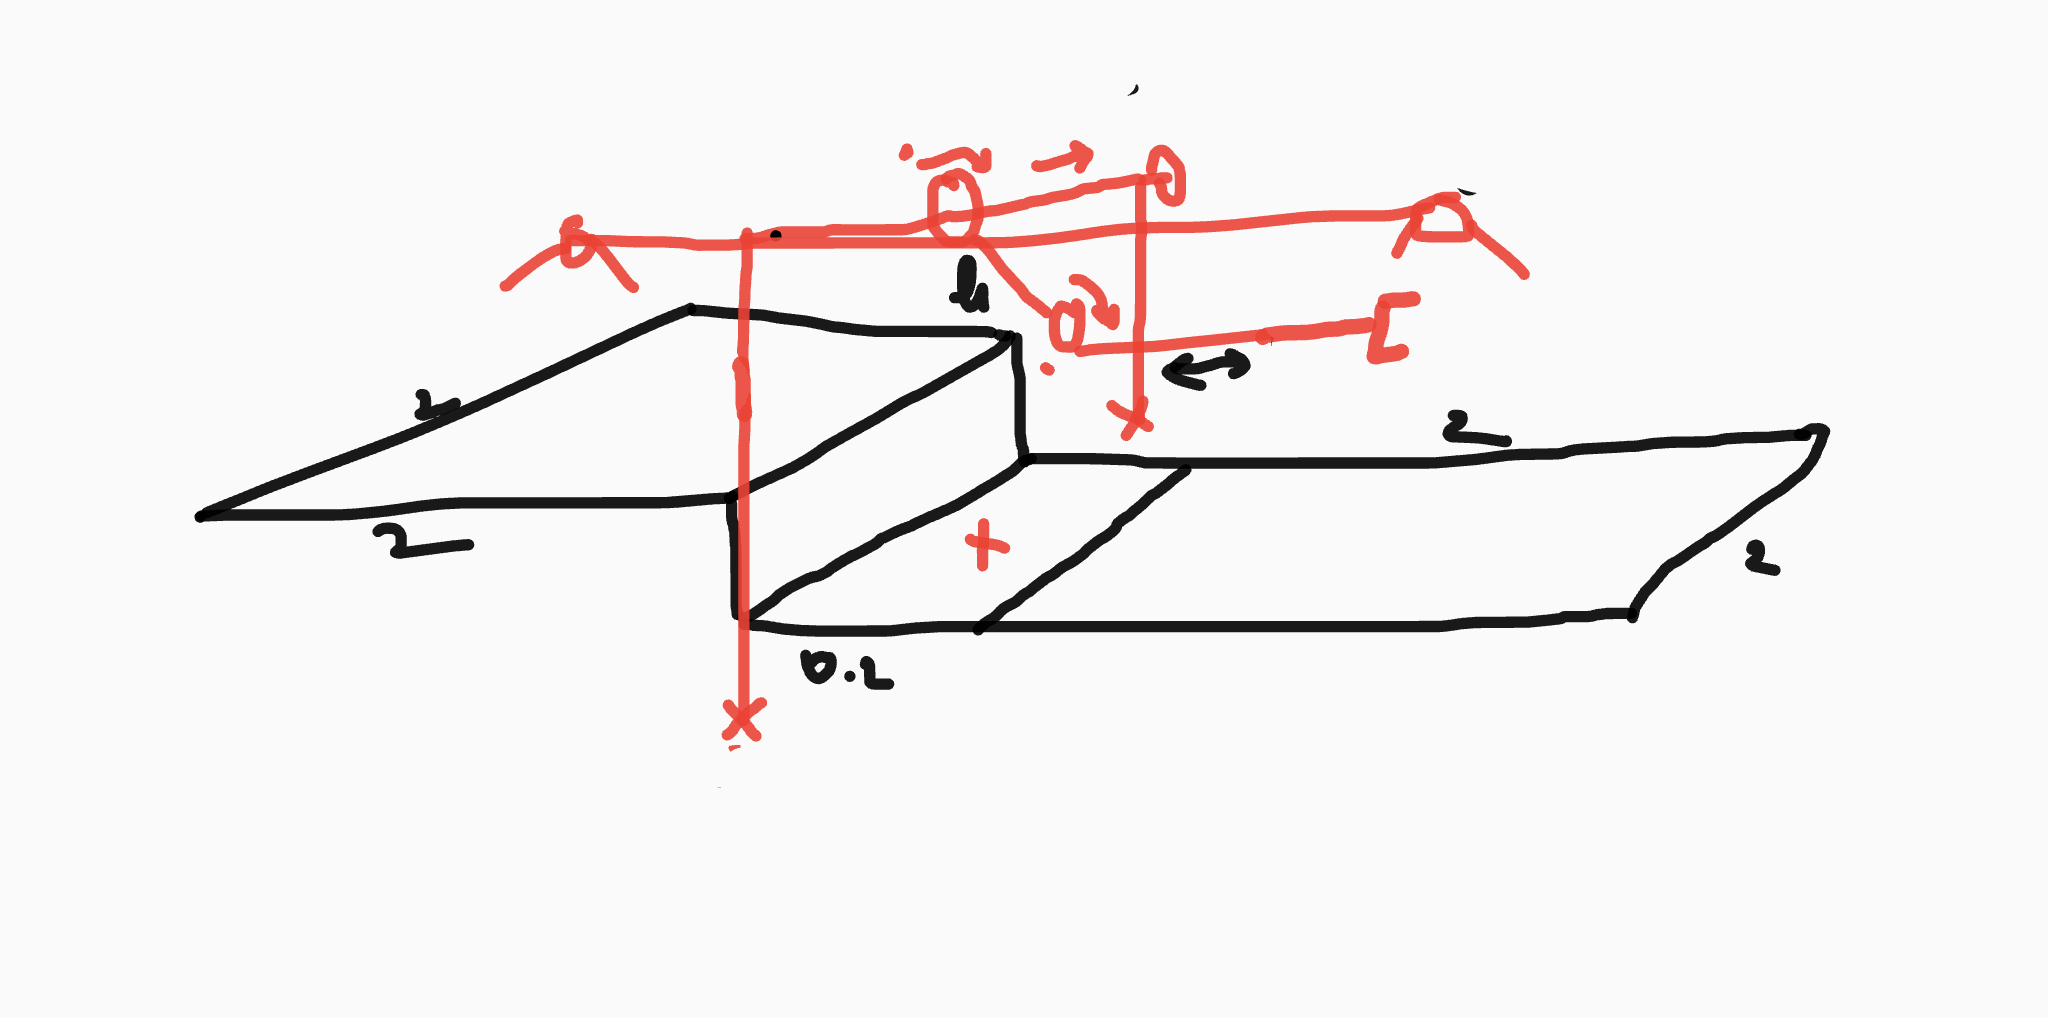 h
2
2
2
2
+
0.2